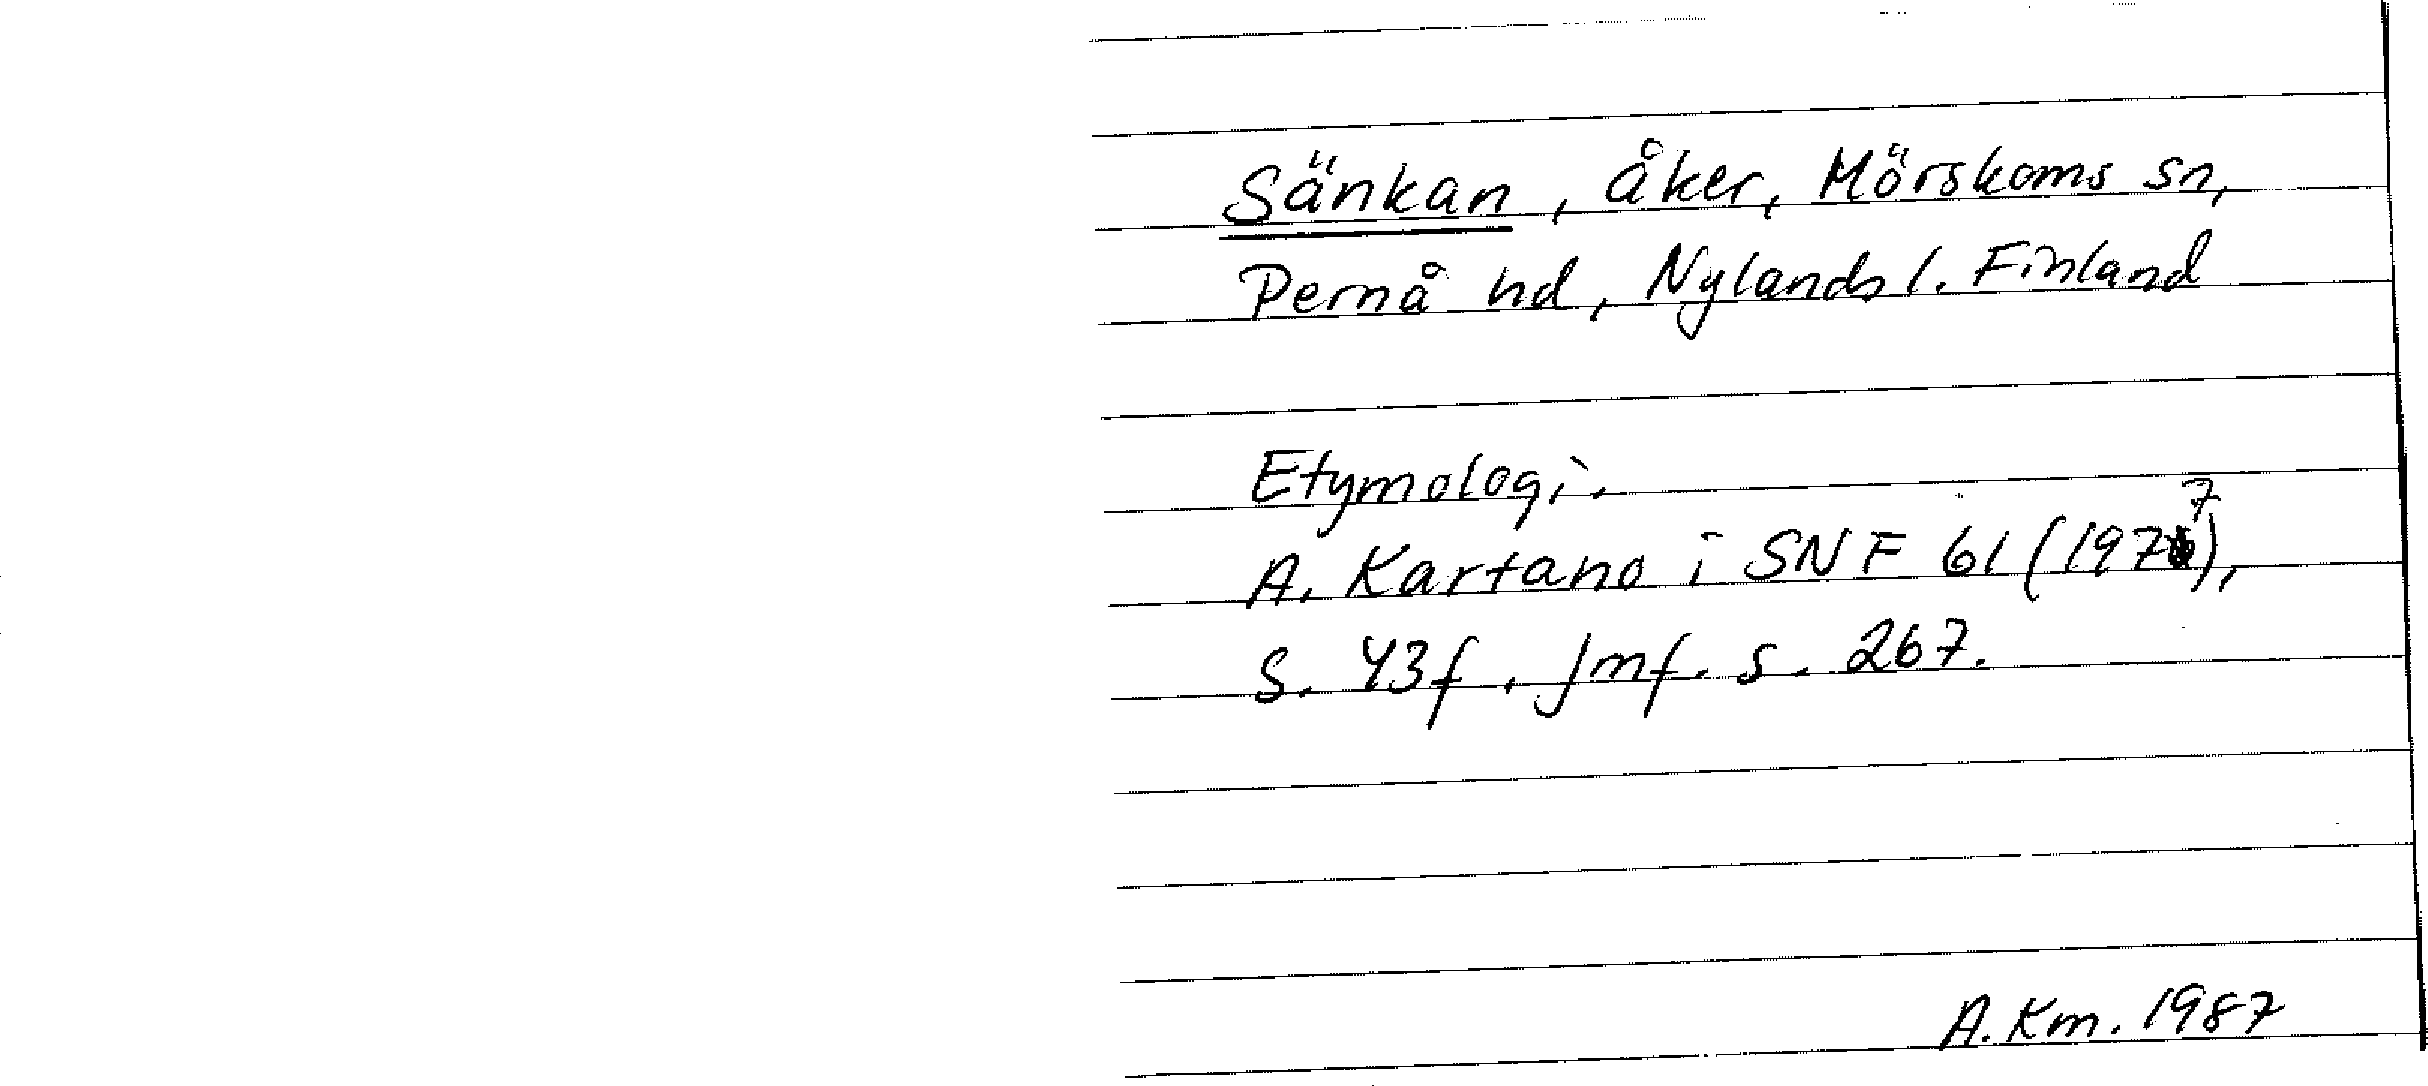 Sänkan, åker, Mörskoms sn,
Pernå hd, Nylands l. Finland
Etymologi.
A. Kartano i SNF 61 (1977),
s. 43f. Jmf. s. 267.
A. Km. 1987